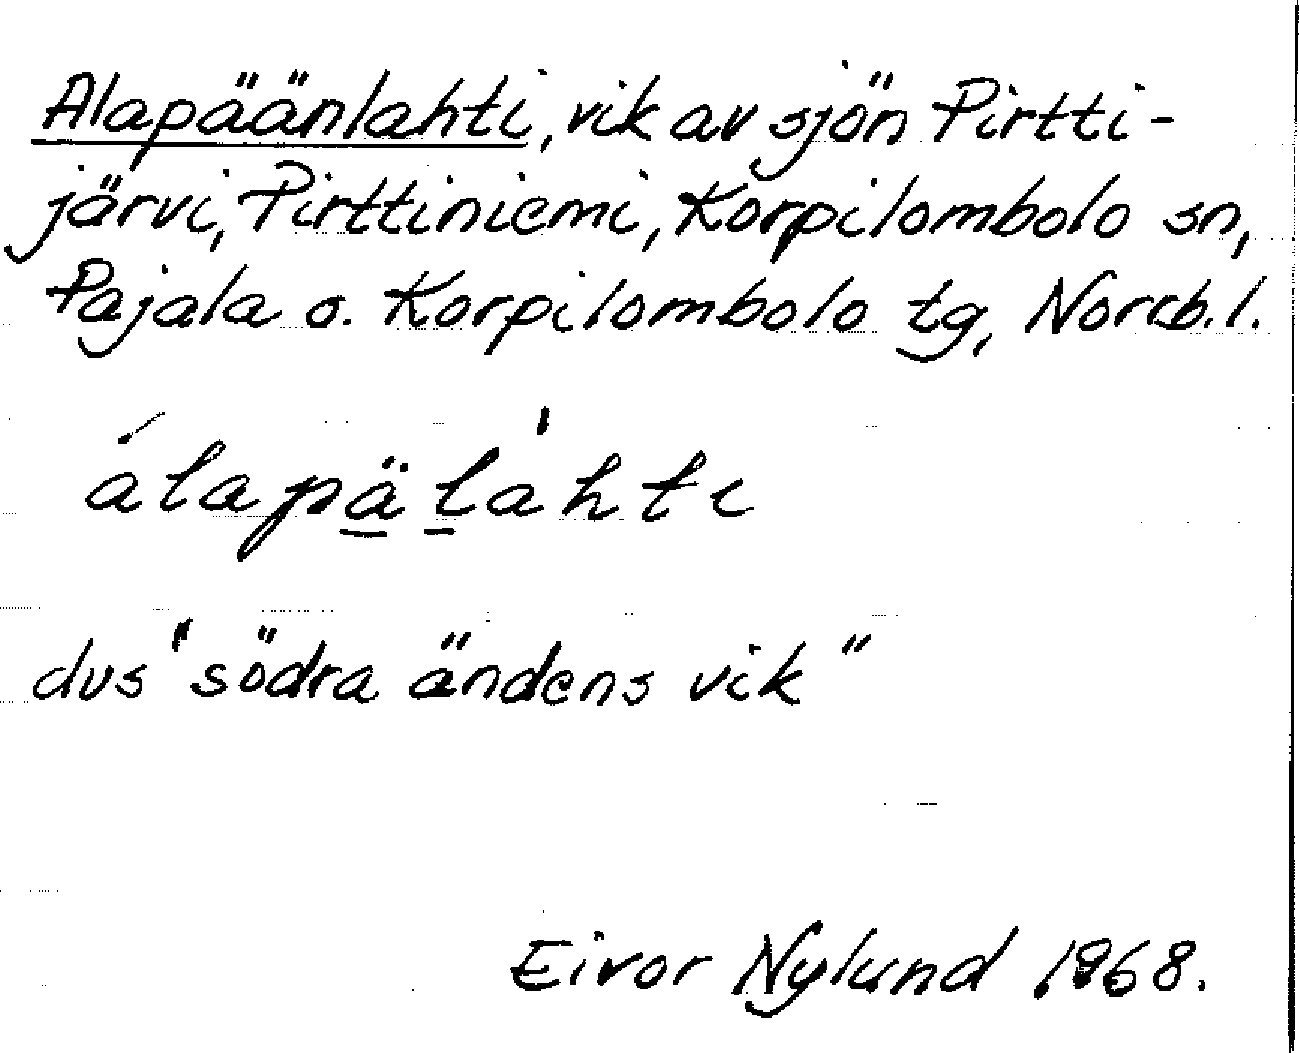 Alapäänlahti, vik av sjön Pirtti-
järvi, Pirttiniemi, Korpilombolo sn,
Pajala o. Korpilombolo tg, Norrb.l.
álapä̱ ḻàhti
dvs "södra ändens vik"
Eivor Nylund 1968.